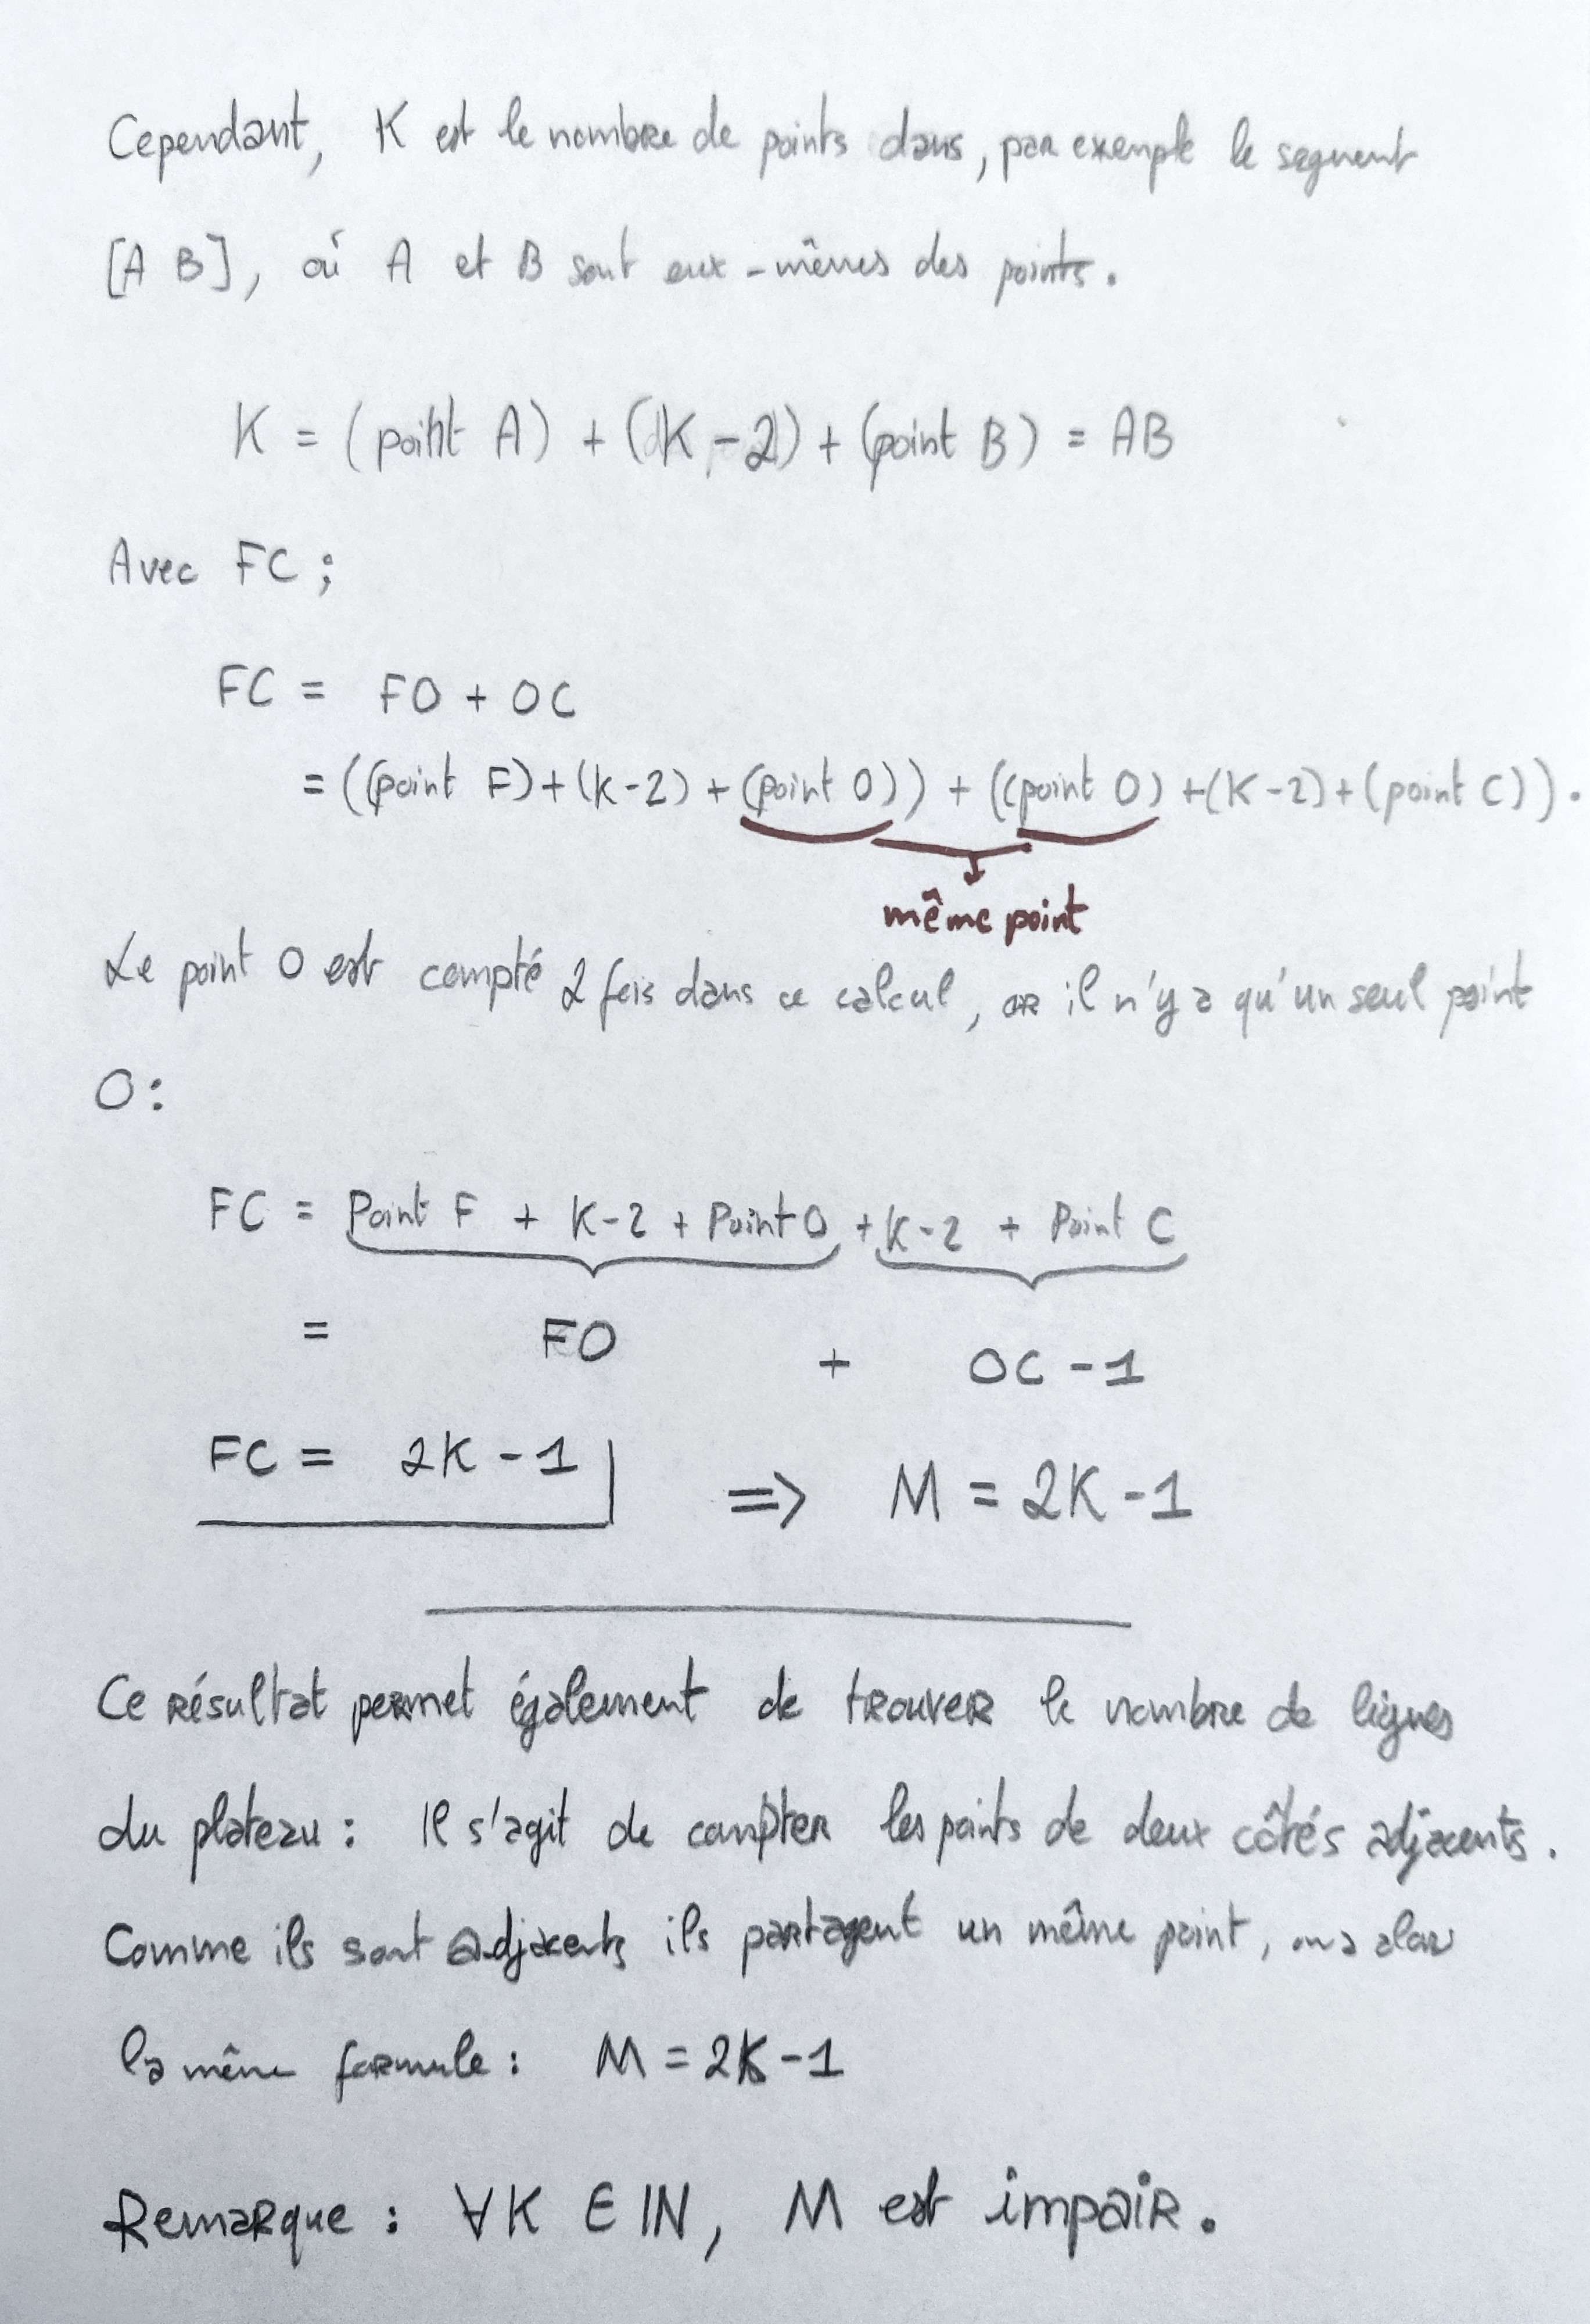 Cependant, K est le nombre de points dans, par exemple le segment
[A B], où A et B sont eux-mêmes des points.
K = (point A) + (K - 2) + (point B) = AB
Avec FC ;
FC = FO + OC
= ((point F) + (K-2) + (point O)) + ((point O) + (K-2) + (point C)).
même point
Le point O est compté 2 fois dans ce calcul, or il n'y a qu'un seul point
O :
FC = Point F + K-2 + Point O + K-2 + Point C
= FO + OC - 1
FC = 2K - 1 => M = 2K - 1
Ce résultat permet également de trouver le nombre de lignes
du plateau : Il s'agit de compter les points de deux côtés adjacents.
Comme ils sont adjacents ils partagent un même point, on a alors
la même formule : M = 2K - 1
Remarque : ∀K ∈ IN, M est impair.